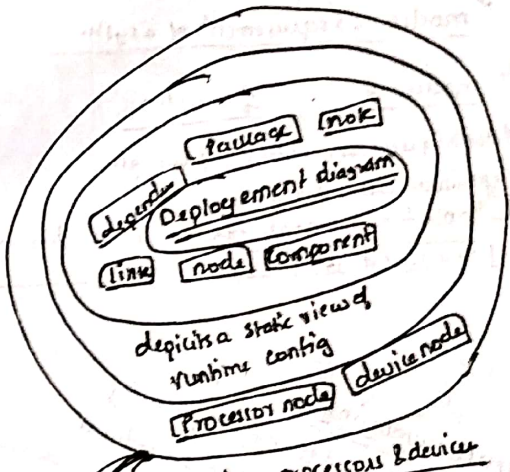 Package note
depende
Deployement diagram
link node component
depicits a static view of
runtime config
Processor node device node
processors & devices